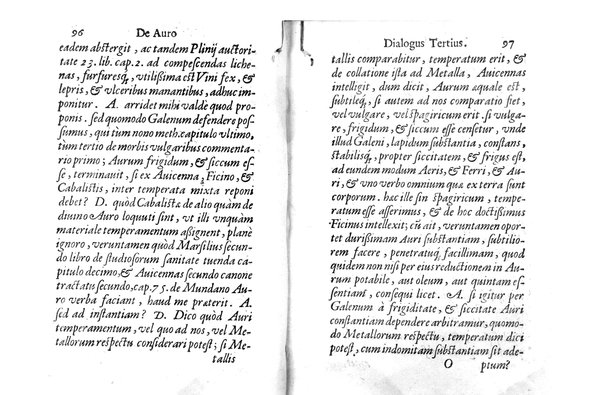 96 De Auro
eadem abstergit, ac tandem Plinij auctori-
tate 23. lib. cap. 2. ad compescendas liche-
nas, furfuresq́, utilissima est Vini fex, &
lepris, & vlceribus manantibus, adhuc im-
ponitur. A. arridet mihi valdè quod pro-
ponis. sed quomodo Galenum defendere pos-
sumus, qui tùm nono meth. capitulo vltimo,
tùm tertio de morbis vulgaribus commenta-
rio primo; Aurum frigidum, & siccum es-
se, terminauit, si ex Auicenna, Ficino, &
Cabalistis, inter temperata mixta reponi
debet? D. quòd Cabalistæ de alio quàm de
diuino Auro loquuti sint, vt illi vnquàm
materiale temperamentum assignent, planè
ignoro, veruntamen quòd Marsilius secun-
do libro de studiosorum sanitate tuenda ca-
pitulo decimo, & Auicennas secundo canone
tractatu secundo, cap. 75. de Mundano Au-
ro verba faciant, haud me præterit. A.
sed ad instantiam? D. Dico quòd Auri
temperamentum, vel quo ad nos, vel Me-
tallorum respectu considerari potest; si Me-
tallis
Dialogus Tertius. 97
tallis comparabitur, temperatum erit, &
de collatione ista ad Metalla, Auicennas
intelligit, dum dicit, Aurum æquale est,
subtileq́, si autem ad nos comparatio fiet,
vel vulgare, vel spagiricum erit. si vulga-
re, frigidum, & siccum esse censetur, vnde
illud Galeni, lapidum substantia, constans,
stabilisq́, propter siccitatem, & frigus est,
ad eundem modum Aeris, & Ferri, & Au-
ri, & vno verbo omnium quæ ex terra sunt
corporum. hæc ille sin spagiricum, tempe-
ratum esse asserimus, & de hoc doctissimus
Ficinus intellexit; cũ ait, veruntamen opor-
tet durissimam Auri substantiam, subtilio-
rem facere, penetratuq́, facillimam, quod
quidem non nisi per eius reductionem in Au-
rum potabile, aut oleum, aut quintam es-
sentiam, consequi licet. A. si igitur per
Galenum à frigiditate, & siccitate Auri
constantiam dependere arbitramur, quomo-
do Metallorum respectu, temperatum dici
potest, cum indomitam substantiam sit ade-
O ptum?